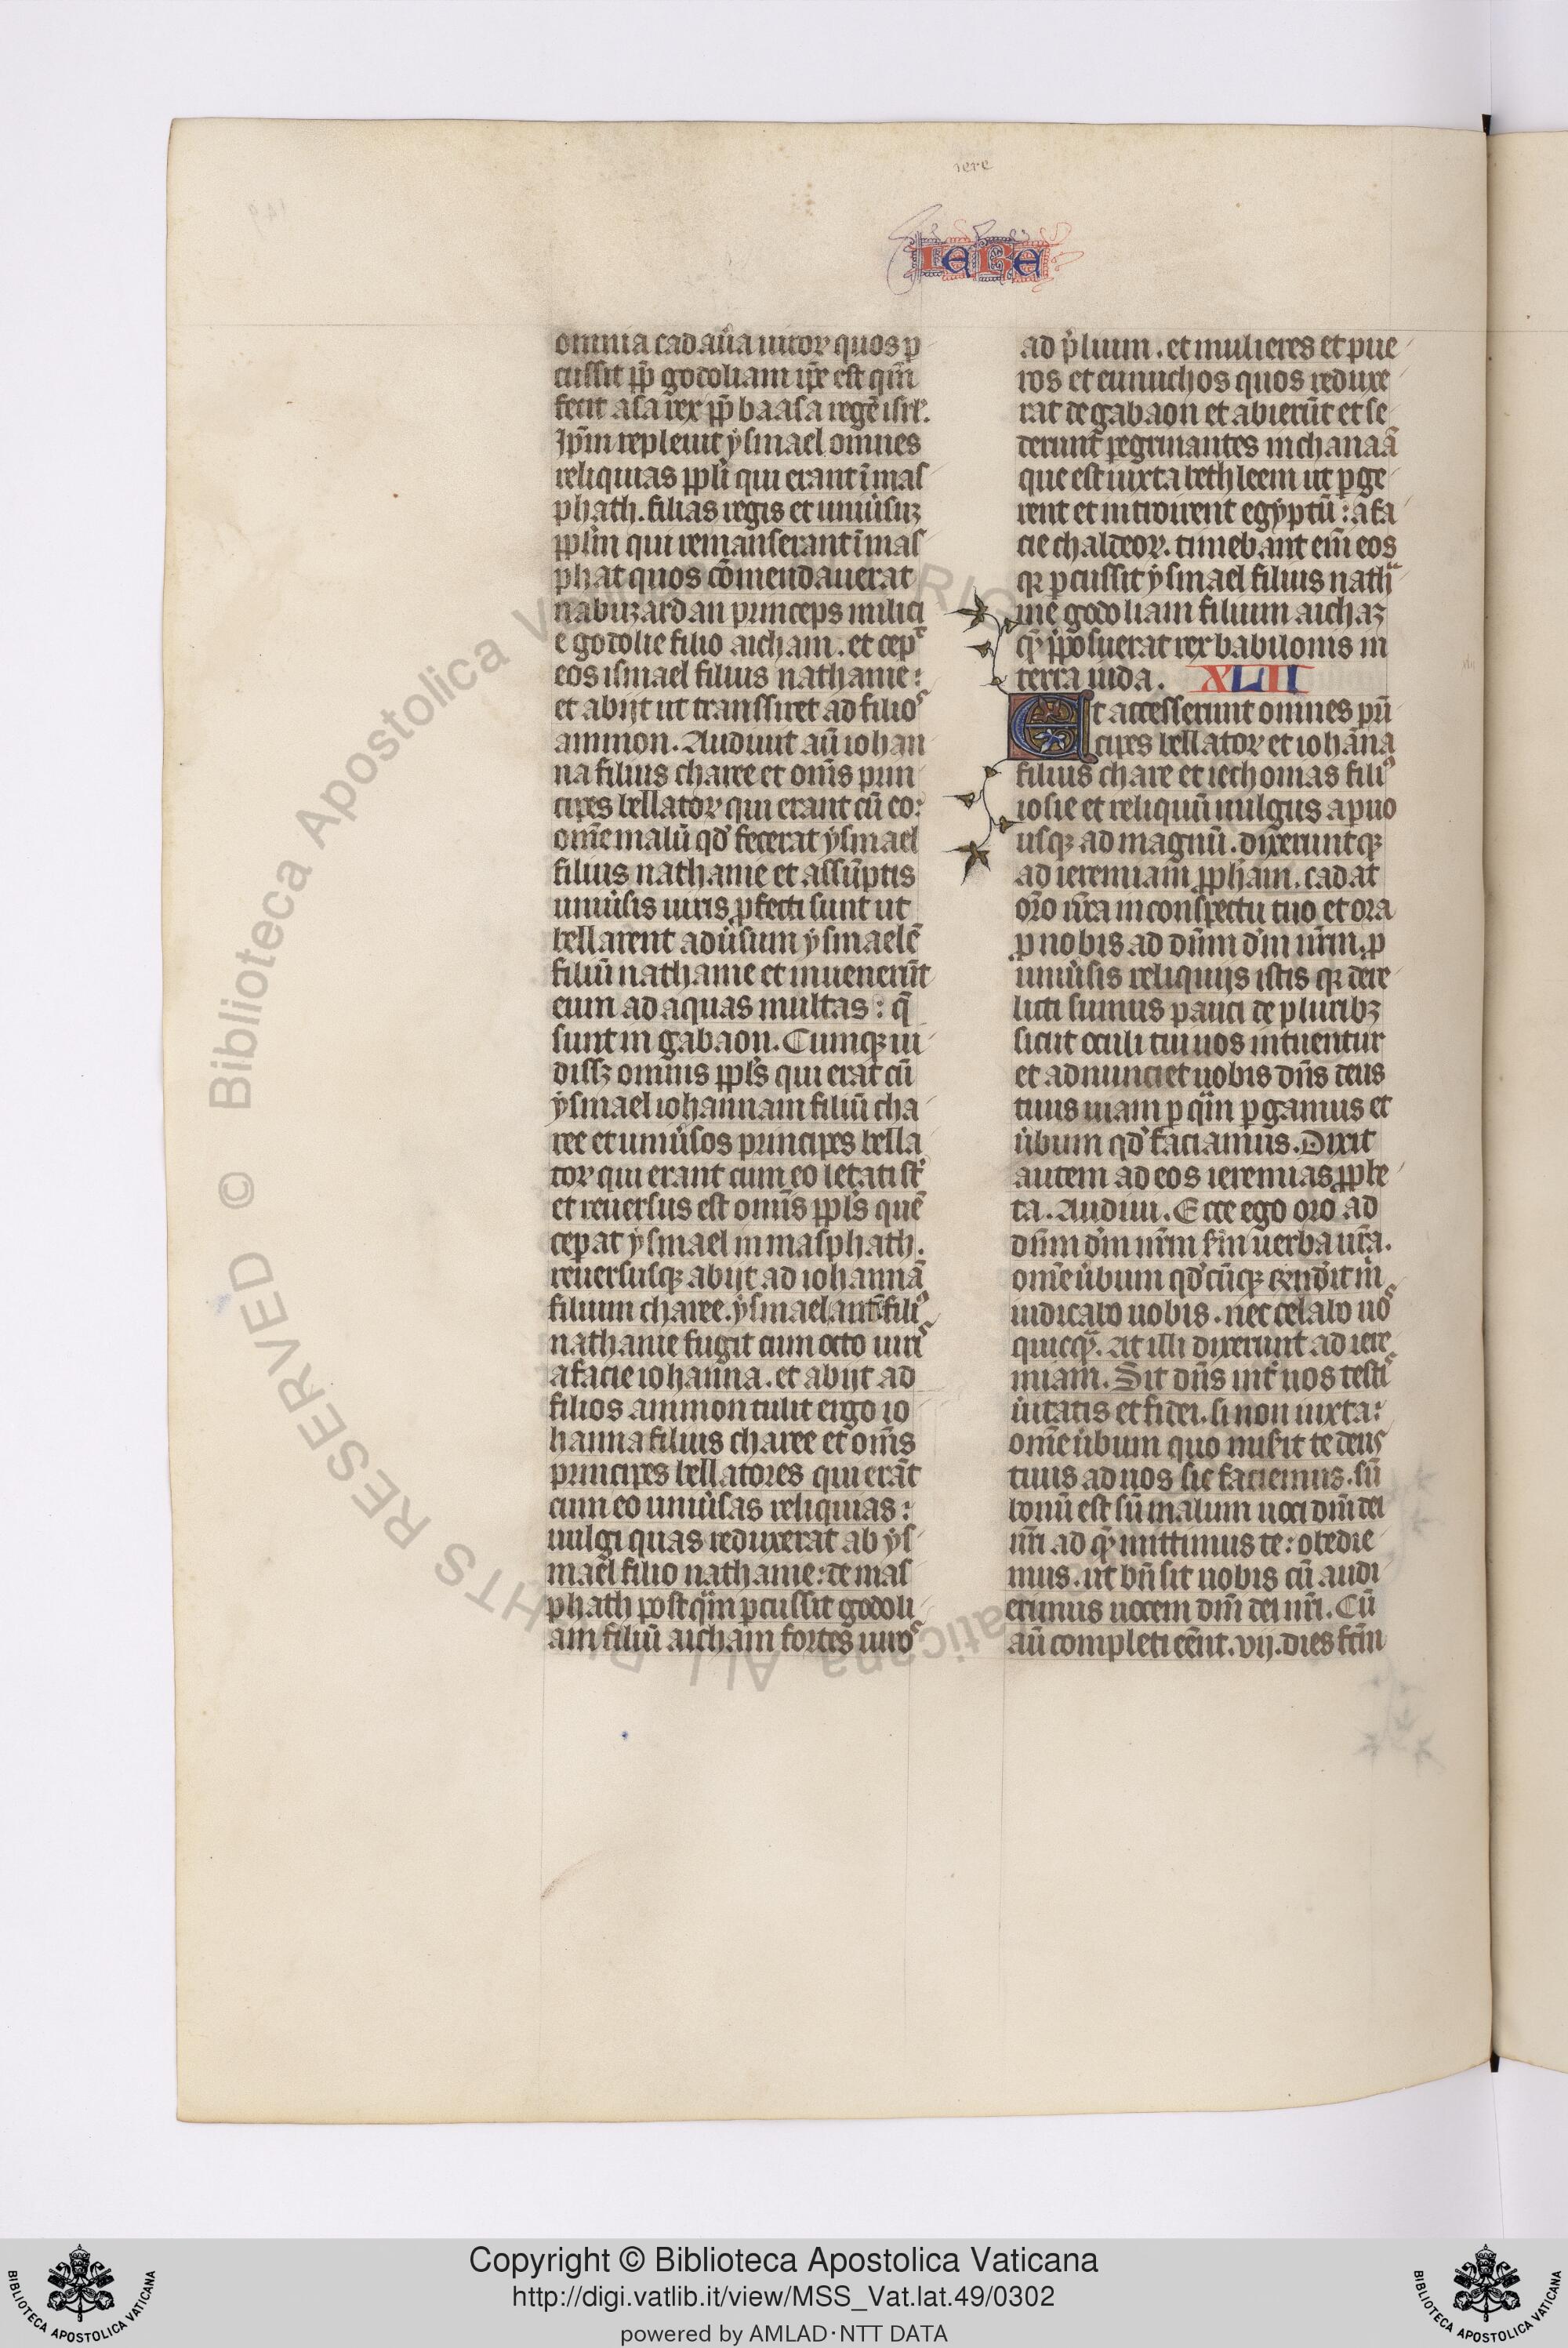 iere
IERE
omnia cadaũa uiroꝝ quos ꝑ
cussit ꝓp̃ godoliam ip̃e est quẽ
fecit asa rex ꝓp̃ baasa regẽ isrl̃.
Ip̃m repleuit ẏsmael omnes
reliquias ppl̃i qui erant ĩ mas
phath. filias regis et uniũsuꝫ
ppl̃m qui remanserant ĩ mas
phat quos cõmendauerat
nabuzardan princeps milici
e godolie filio aicham. et cep̃
eos ismael filius nathanie:
et abijt ut transsiret ad filios
ammon. Audiuit aũ iohan
na filius charee et om̃s prin
cipes bellatoꝝ qui erant cũ eo:
om̃e malũ qđ fecerat ẏsmael
filius nathanie et assũptis
uniũsis uiris ꝓfecti sunt ut
bellarent adũsum ẏsmaelẽ
filiũ nathanie et inuenerũt
eum ad aquas multas: q̃
sunt in gabaon. Cumqꝫ ui
dissꝫ omnis ppl̃s qui erat cũ
ẏsmael iohannam filiũ cha
ree et uniũsos principes bella
toꝝ qui erant cum eo letati st̃
et reuersus est om̃s ppl̃s quẽ
ceperat ẏsmael in masphath.
reuersusqꝫ abijt ad iohannã
filium charee. ẏsmael autẽ filiꝰ
nathanie fugit cum octo uiris
a facie iohanna. et abijt ad
filios ammon tulit ergo io
hanna filius charee et om̃s
principes bellatores qui erãt
cum eo uniũsas reliquias:
uulgi quas reduxerat ab ẏs
mael filio nathanie: de mas
phath postq̃m ꝑcussit godoli
am filiũ aicham fortes uiros
ad p̃lium. et mulieres et pue
ros et eunuchos quos reduxe
rat de gabaon et abierũt et se
derunt ꝑegrinantes in chanaã
que est iuxta bethleem ut ꝑge
rent et introirent egẏptũ: a fa
cie chaldeoꝝ. timebant em̃ eos
qꝛ ꝑcussit ẏsmael filius natha
nie godoliam filium aichaꝫ
q̃ p̃posuerat rex babilonis in
terra iuda. XLII
Et accesserunt omnes prĩ
cipes bellatoꝝ et iohãna
filius charee et iechonias filiꝰ
iosie et reliquũ uulgus a puo
usqꝫ ad magnũ. dixeruntqꝫ
ad ieremiam ꝓpham. cadat
orõ nr̃a in conspectu tuo et ora
ꝓ nobis ad dñm dm̃ nr̃m. ꝓ
uniũsis reliquijs istis qꝛ dere
licti sumus pauci de pluribꝫ
sicut oculi tui nos intuentur
et adnunciet nobis dñs deus
tuus uiam ꝑ q̃m ꝑgamus et
ũbum qđ faciamus. Dixit
autem ad eos ieremias ꝓphe
ta. Audiui. Ecce ego oro ad
dñm dm̃ nr̃m scđm uerba ur̃a.
om̃e ũbum qđcũqꝫ rñdẽit m̃
indicabo uobis. nec celabo uos
quicq̃. At illi dixerunt ad iere
miam. Sit dñs int̃ nos testis
ũitatis et fidei. si non iuxta:
om̃e ũbum quo miserit te deus
tuus ad nos sic faciemus. siũ
bonũ est siũ malum uoci dñi dei
nr̃i ad q̃ mittimus te: obedie
mus. ut bñ sit nobis cũ audi
erimus uocem dñi dei nr̃i. Cũ
aũ completi eẽnt. vij. dies fc̃m
© Biblioteca Apostolica Vaticana ALL RIGHTS RESERVED
Copyright © Biblioteca Apostolica Vaticana
http://digi.vatlib.it/view/MSS_Vat.lat.49/0302
powered by AMLAD·NTT DATA
BIBLIOTECA APOSTOLICA VATICANA
BIBLIOTECA APOSTOLICA VATICANA